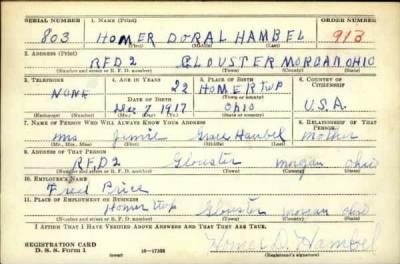 SERIAL NUMBER 1. NAME (Print) ORDER NUMBER
803 HOMER DORAL HAMBEL 913
(First) (Middle) (Last)
2. ADDRESS (Print)
RFD 2 GLOUSTER MORGAN OHIO
(Number and street or R. F. D. number) (Town) (County) (State)
3. TELEPHONE 4. AGE IN YEARS 5. PLACE OF BIRTH 6. COUNTRY OF CITIZENSHIP
22 HOMER TWP
NONE DATE OF BIRTH (Town or county)
Dec 7 1917 OHIO U.S.A.
(Exchange) (Number) (Mo.) (Day) (Yr.) (State or country)
7. NAME OF PERSON WHO WILL ALWAYS KNOW YOUR ADDRESS 8. RELATIONSHIP OF THAT PERSON
Mrs Jimie Grace Hambel Mother
(Mr., Mrs., Miss) (First) (Middle) (Last)
9. ADDRESS OF THAT PERSON
RFD 2 Glouster Morgan Ohio
(Number and street or R. F. D. number) (Town) (County) (State)
10. EMPLOYER'S NAME
Fred Price
11. PLACE OF EMPLOYMENT OR BUSINESS
Homer twp Glouster Morgan Ohio
(Number and street or R. F. D. number) (Town) (County) (State)
I AFFIRM THAT I HAVE VERIFIED ABOVE ANSWERS AND THAT THEY ARE TRUE.
REGISTRATION CARD
D. S. S. Form 1 (over) 16-17105 Homer D. Hambel
(Registrant's signature)